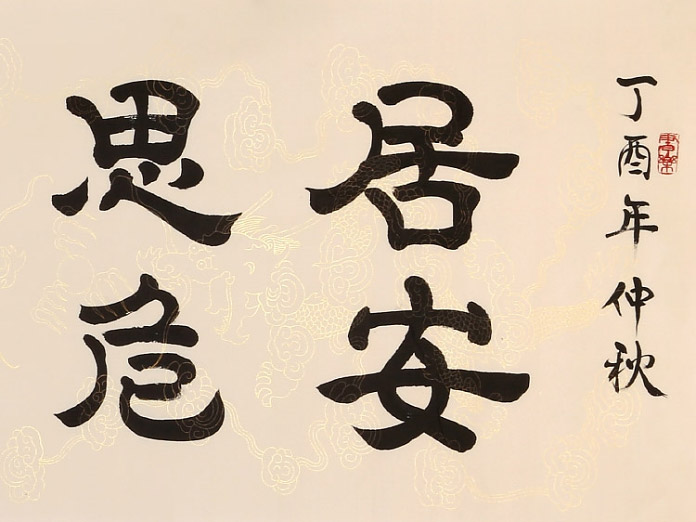 丁酉年仲秋
居安
思危